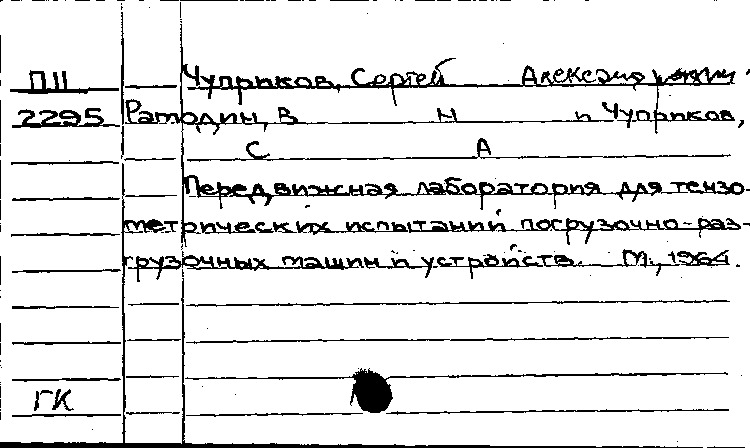 П11 Чуприков, Сергей Александрович.
2295 Рамодин, В Н и Чуприков,
С А
Передвижная лаборатория для тензо-
метрических испытаний погрузочно-раз-
грузочных машин и устройств. М., 1964.
ГК